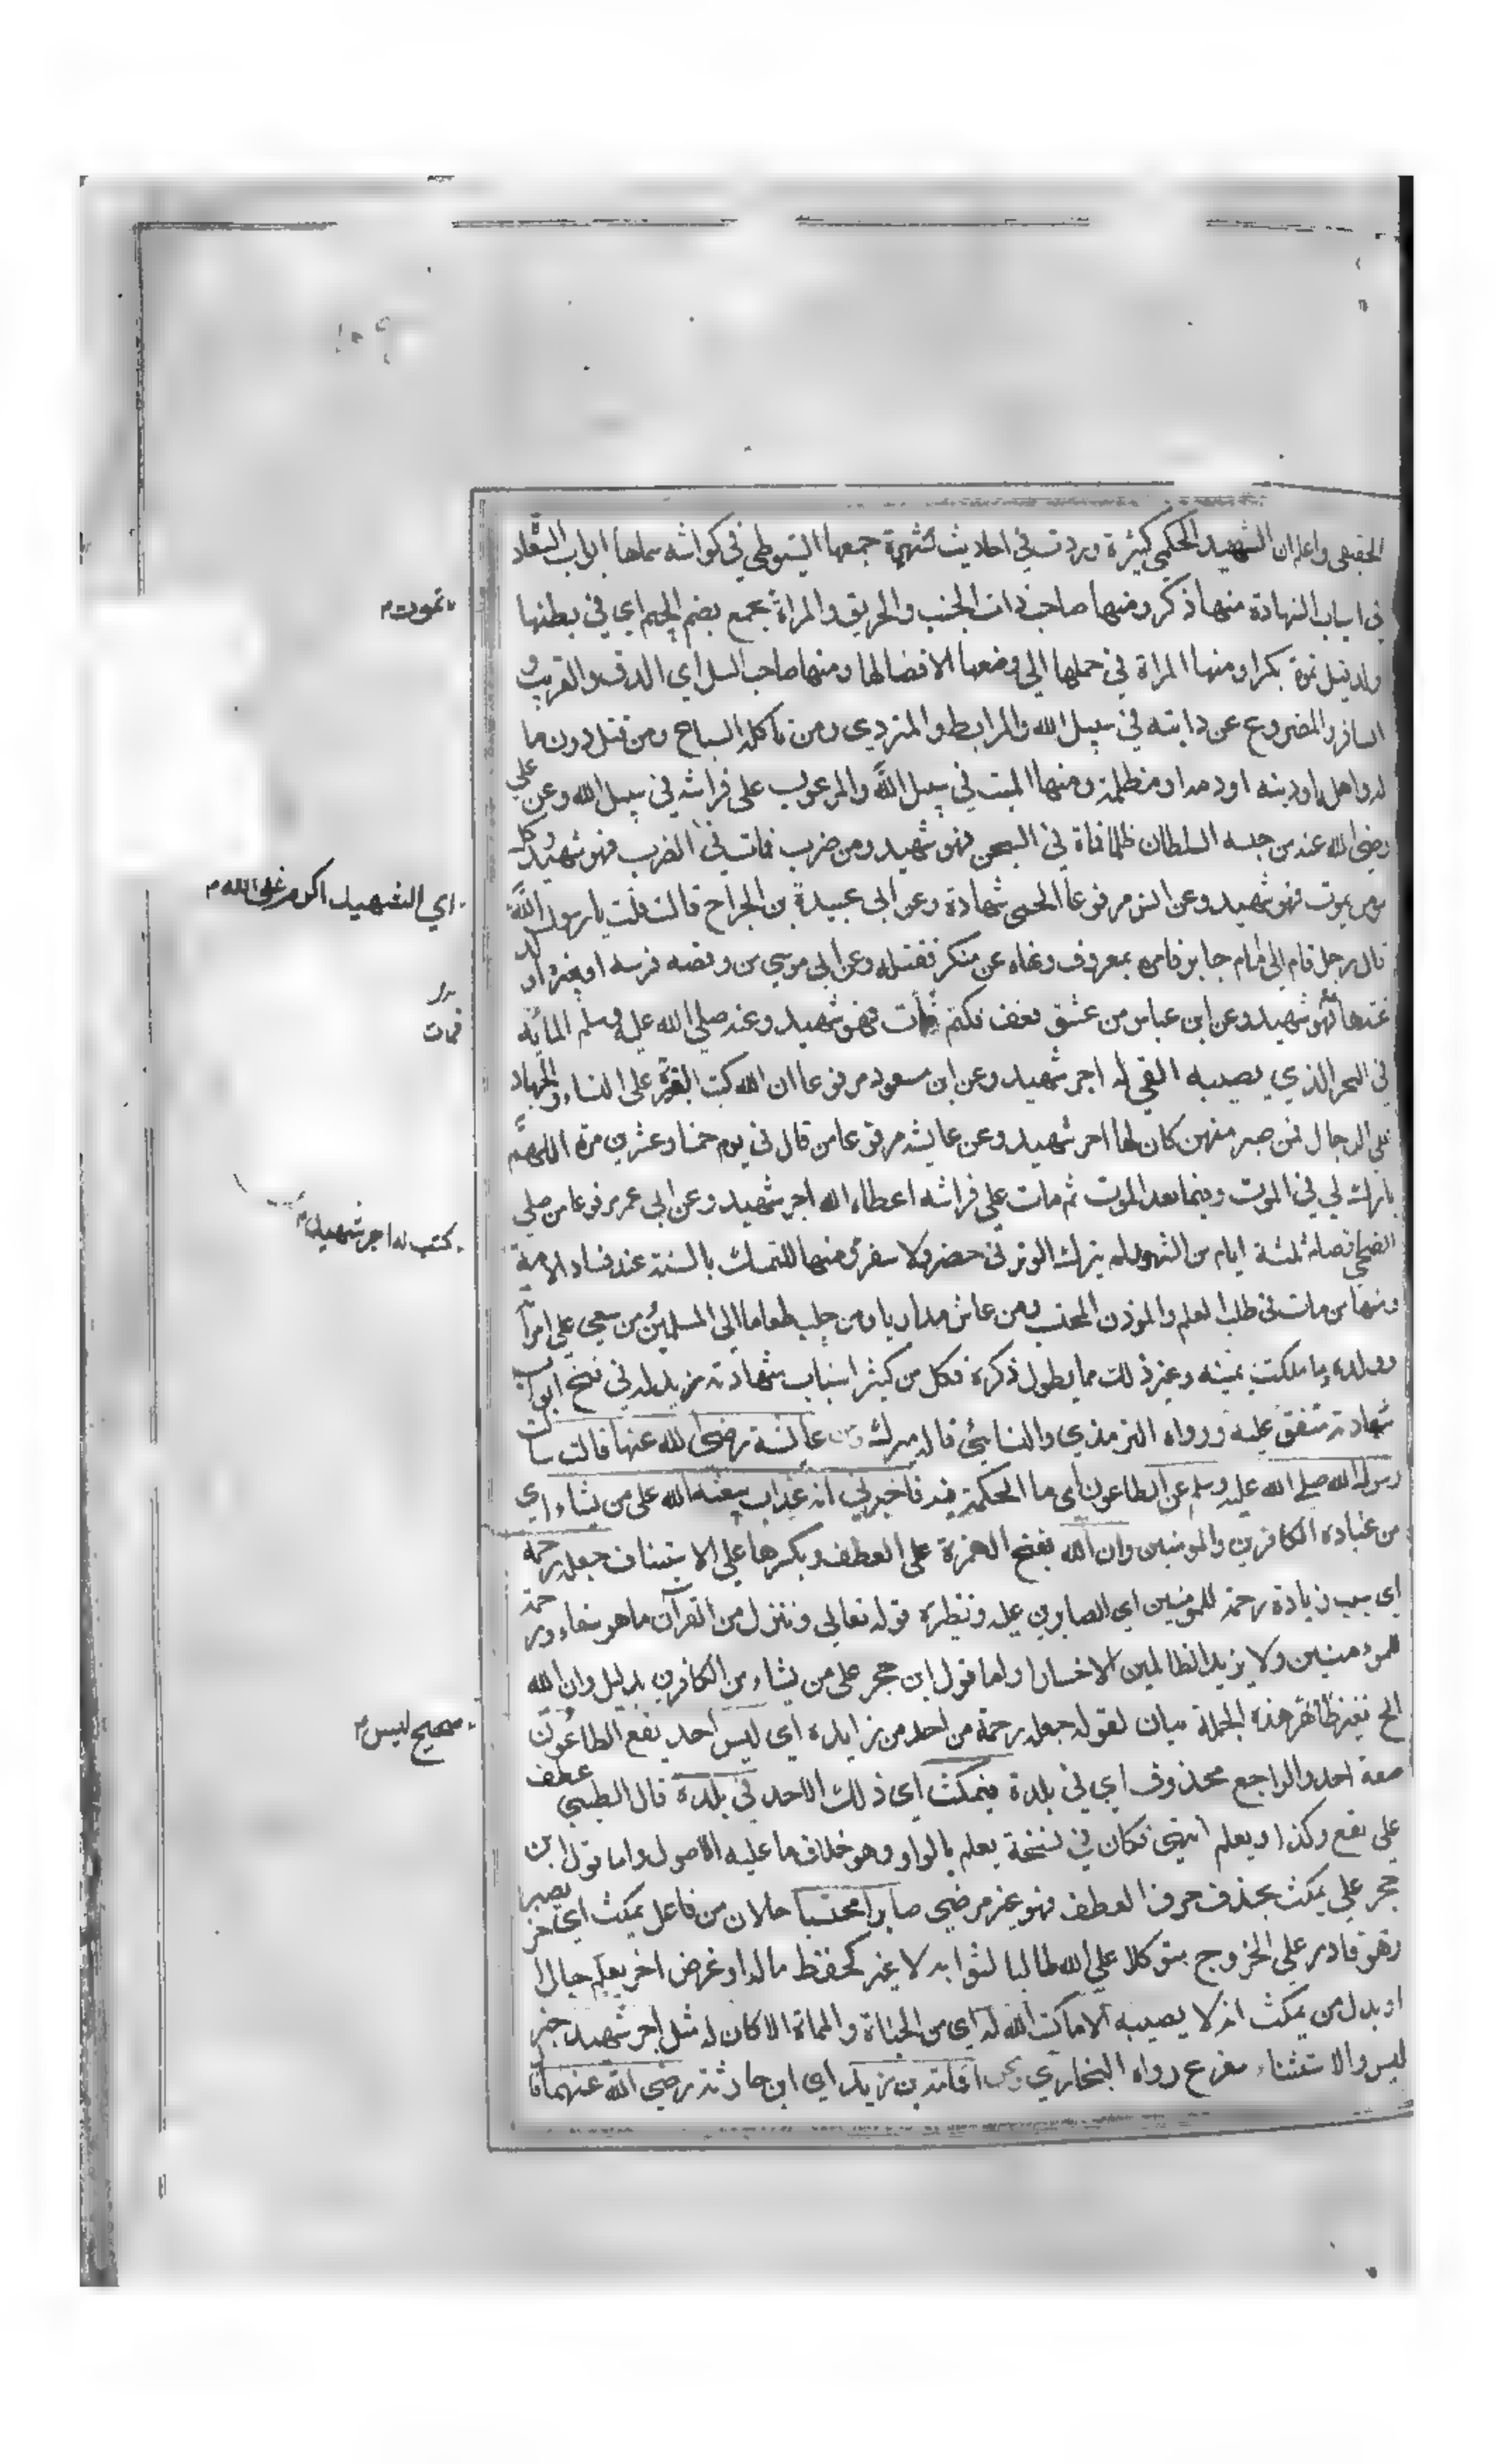 الحقيقي واعلم ان الشهيد الحكمي كثيرة وردت في احاديث شهيرة جمعها السيوطي في كراسة سماها ابواب السعادة
في اسباب الشهادة منها ذكر ومنها صاحب ذات الجنب والحريق والمراة بجمع بضم الجيم اي في بطنها
ولد قيل تموت بكرا ومنها المراة في حملها الي وضعها الا فصالها ومنها صاحب السل اي الدق والغريب و
المسافر والمصروع عن دابته في سبيل الله والمرابط والمتردي ومن تاكله السباع ومن قتل دون ما
له واهله اودينه او دمه او مظلمة ومنها الميت في سبيل الله والمرعوب على فراشه في سبيل الله وعن علي
رضي الله عنه من حبسه السلطان ظلما فماة في السجن فهو شهيد ومن ضرب فمات في الضرب فهو شهيد وكل
مومن يموت فهو شهيد وعن انس مرفوعا الحمى شهادة وعن ابي عبيدة بن الجراح قالت قلت يا رسول الله
قال رجل قام الى امام جابر فامره بمعروف ونهاه عن منكر فقتله وعن ابي موسي من وقصه فرسه او بعيره او لد
غته هامة فهو شهيد وعن ابن عباس من عشق فعف فكتم فمات فهو شهيد وعنه صلي الله عليه وسلم المائد
في البحر الذي يصيبه القي له اجر شهيد وعن ابن مسعود مرفوعا ان الله كتب الغيرة على النساء والجهاد
على الرجال فمن صبر منهن كان لها اجر شهيد وعن عايشة مرفوعا من قال في يوم خمسا وعشرين مرة اللهم
بارك لي في الموت وفيما بعد الموت ثم مات علي فراشه اعطاه الله اجر شهيد وعن ابي عمر مرفوعا من صلي
الضحي وصام ثلثة ايام من الشهر ولم يترك الوتر في حضر ولا سفر ومنها المتمسك بالسنة عند فساد الامة
ومنها من مات في طلب العلم والموذن المحتسب ومن عاش مداريا ومن جلب طعاما الي المسلمين ومن سعي علي امرأته
وولده وما ملكت يمينه وغير ذلك مما يطول ذكره فكل من كثر اسباب شهادته يزيد له في فتح ابواب
شهادته متفق عليه ورواه الترمذي والنسايئ قاله ميرك وعن عائشة رضي الله عنها قالت سالت
رسول الله صلي الله عليه وسلم عن الطاعون اي ما الحكمة فيه فاخبرني انه عذاب يبعثه الله على من يشاء اي
من عباده الكافرين والمومنين وان الله بفتح الهمزة على العطف وبكسرها علي الاستيناف جعله رحمة
اي سبب زيادة رحمة للمؤمنين اي الصابرين عليه ونظيره قوله تعالي وننزل من القرآن ماهو شفاء ورحمة
للمؤمنين ولا يزيد الظالمين الا خسارا واما قول ابن حجر على من يشاء من الكافرين بدليل وان الله
الخ فغير ظاهر هذه الجملة بيان لقوله جعله رحمة من احد من زايدة اي ليس احد يقع الطاعون
صفة احد والراجع محذوف اي في بلدة فيمكث اي ذلك الاحد في بلدة قال الطيبي عطف
على يقع وكذا ويعلم انتهى فكان في نسخة يعلم بالواو وهو خلاف ما عليه الاصول واما قول ابن
حجر علي يمكث بحذف حرف العطف فهو غير مرضي صابرا محتسبا حالان من فاعل يمكث اي يصبر
وهو قادر على الخروج متوكلا علي الله طالبا لثوابه لا غير كحفظ ماله او غرض اخر يعلم حال اخر
او بدل من يمكث انه لا يصيبه الا ما كتب الله له اي من الحياة والمماة الا كان له مثل اجر شهيد خبر
ليس والاستثناء مفرغ رواه البخاري وعن اسامة بن زيد اي ابن حارثة رضي الله عنهما قا
تموت م
اي الشهيد اكرم علي الله م
فمات
كتب له اجر شهيد م
صحيح ليس م